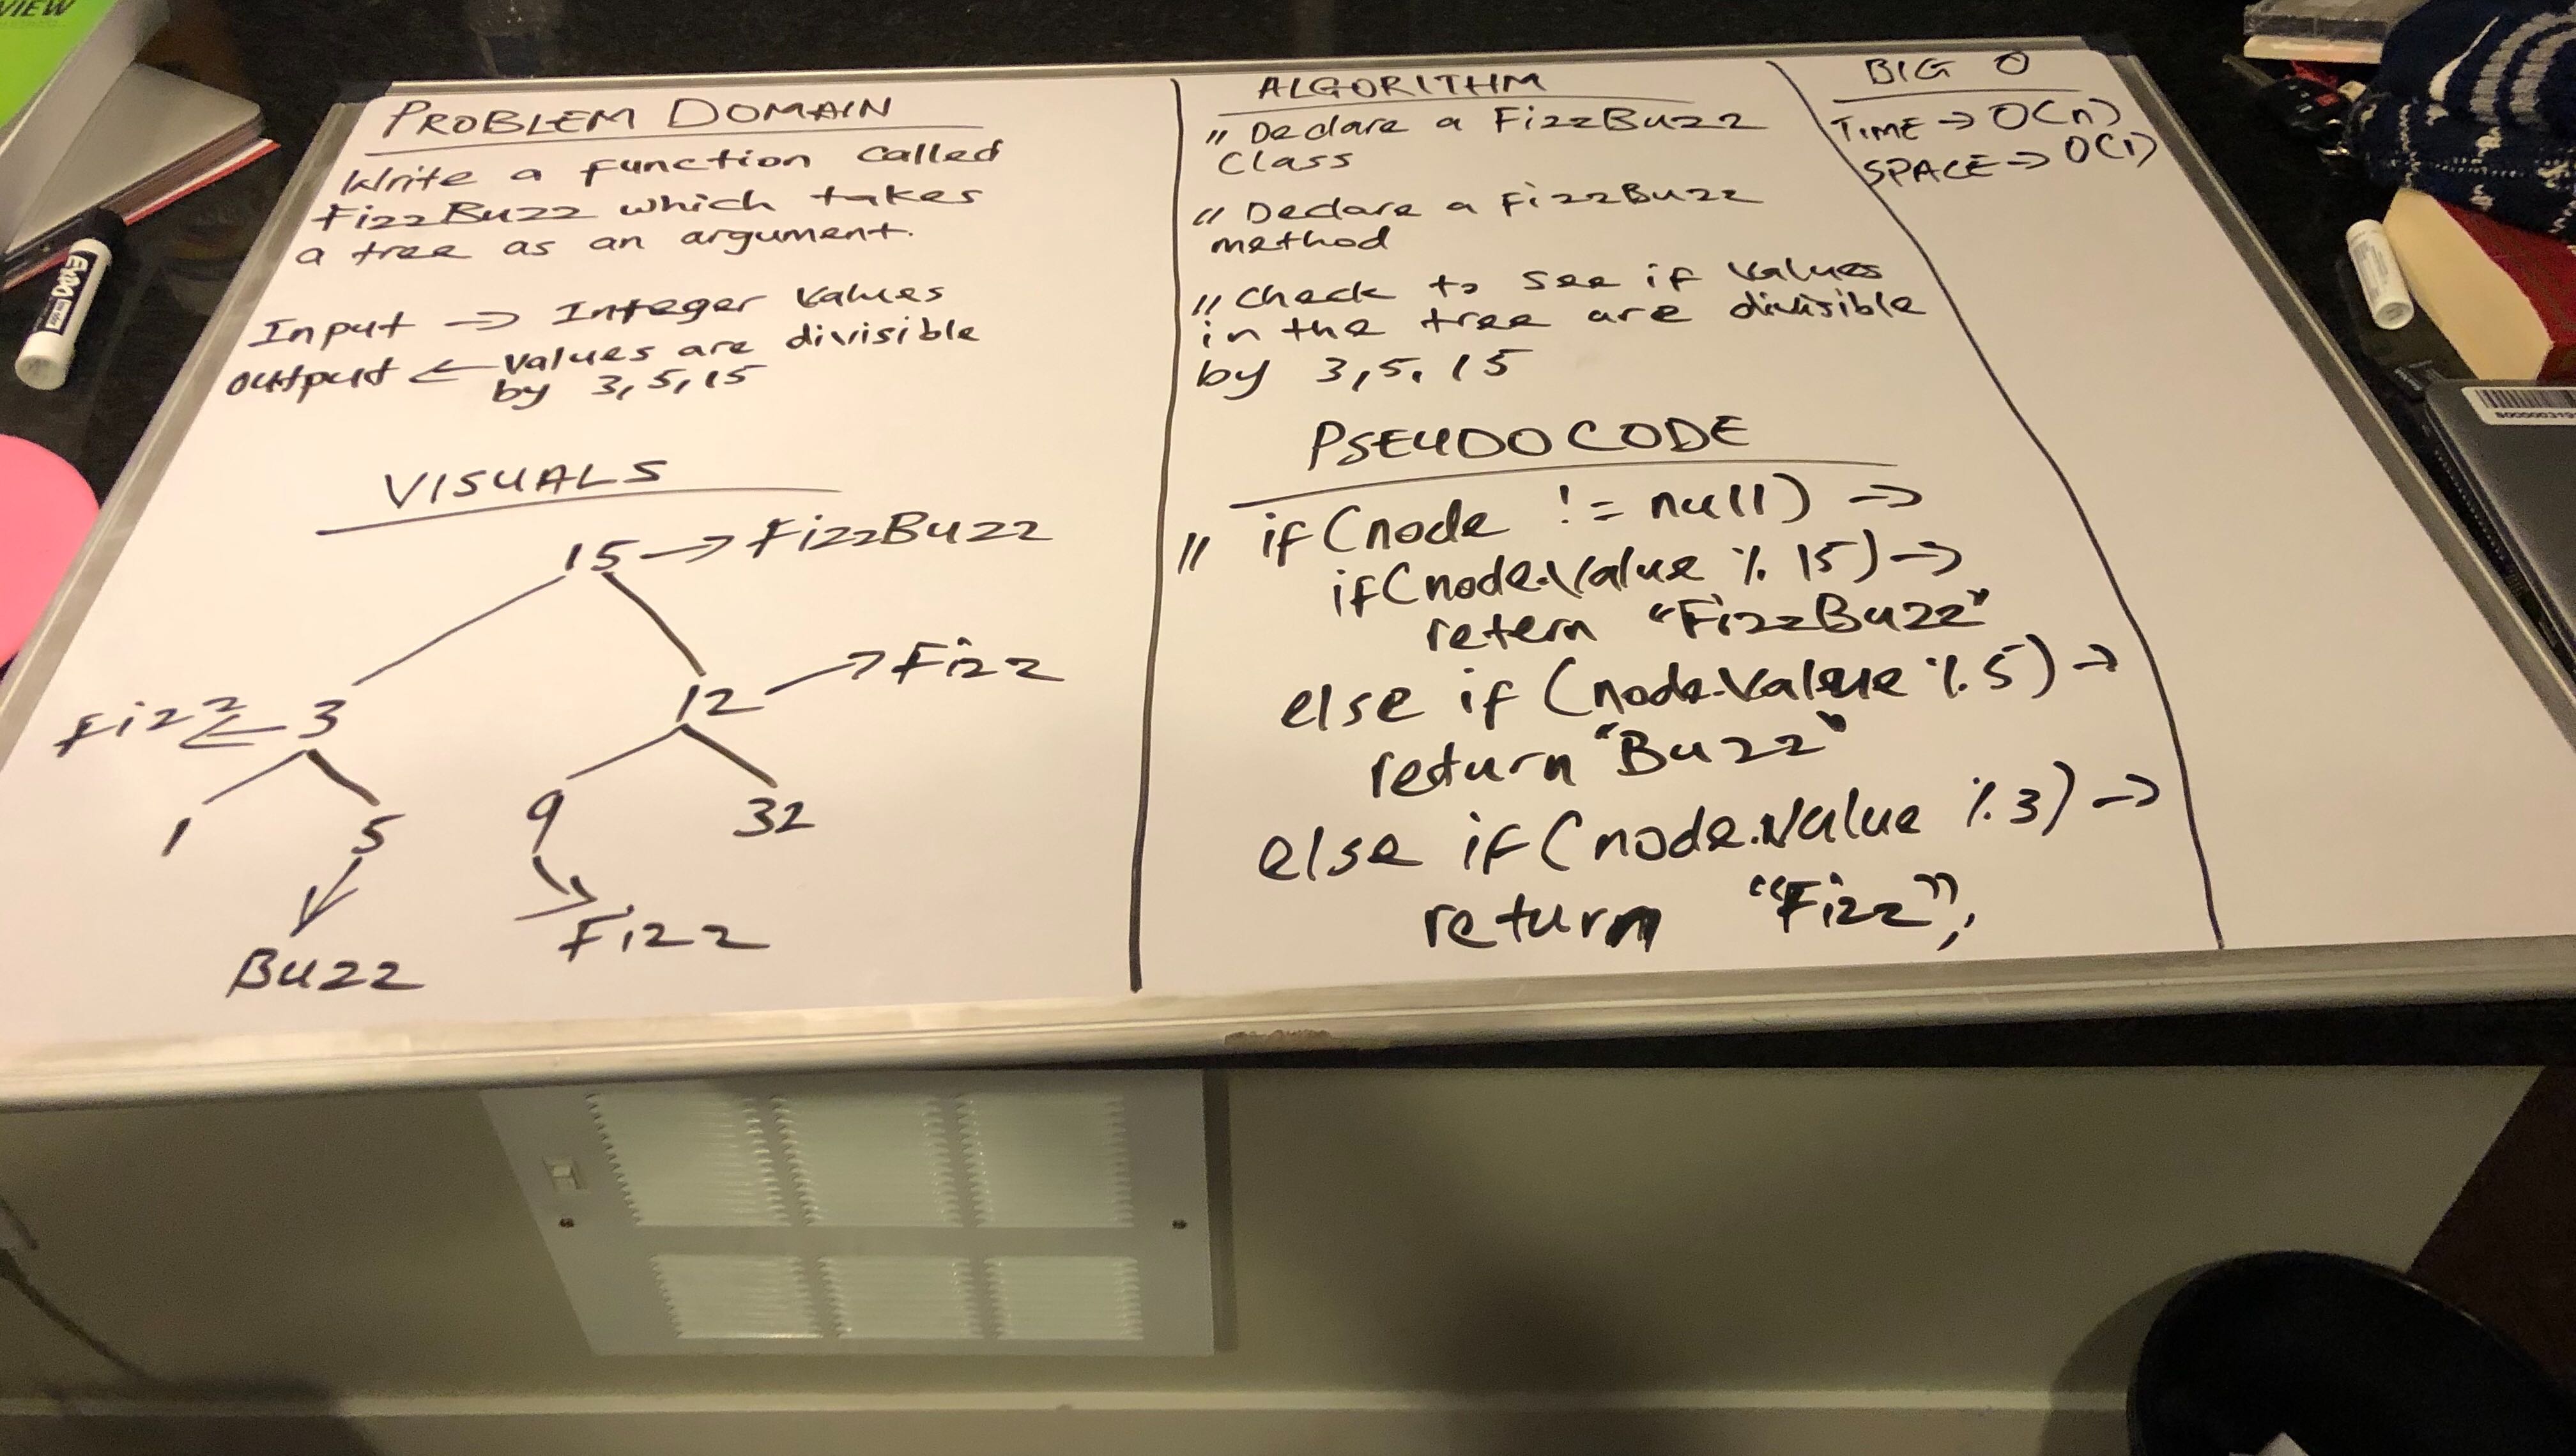 VIEW
EXPO
PROBLEM DOMAIN
Write a function called
FizzBuzz which takes
a tree as an argument.
Input → Integer Values
Output ← Values are divisible
by 3, 5, 15
VISUALS
15 → FizzBuzz
Fizz ← 3
12 → Fizz
1
5
9
32
Buzz
Fizz
ALGORITHM
// Declare a FizzBuzz
Class
// Declare a FizzBuzz
method
// Check to see if Values
in the tree are divisible
by 3, 5, 15
PSEUDO CODE
// if (node != null) →
if (node.Value % 15) →
retern "FizzBuzz"
else if (node.Value % 5) →
return "Buzz"
else if (node.Value % 3) →
return "Fizz";
BIG O
TIME → O(n)
SPACE → O(1)